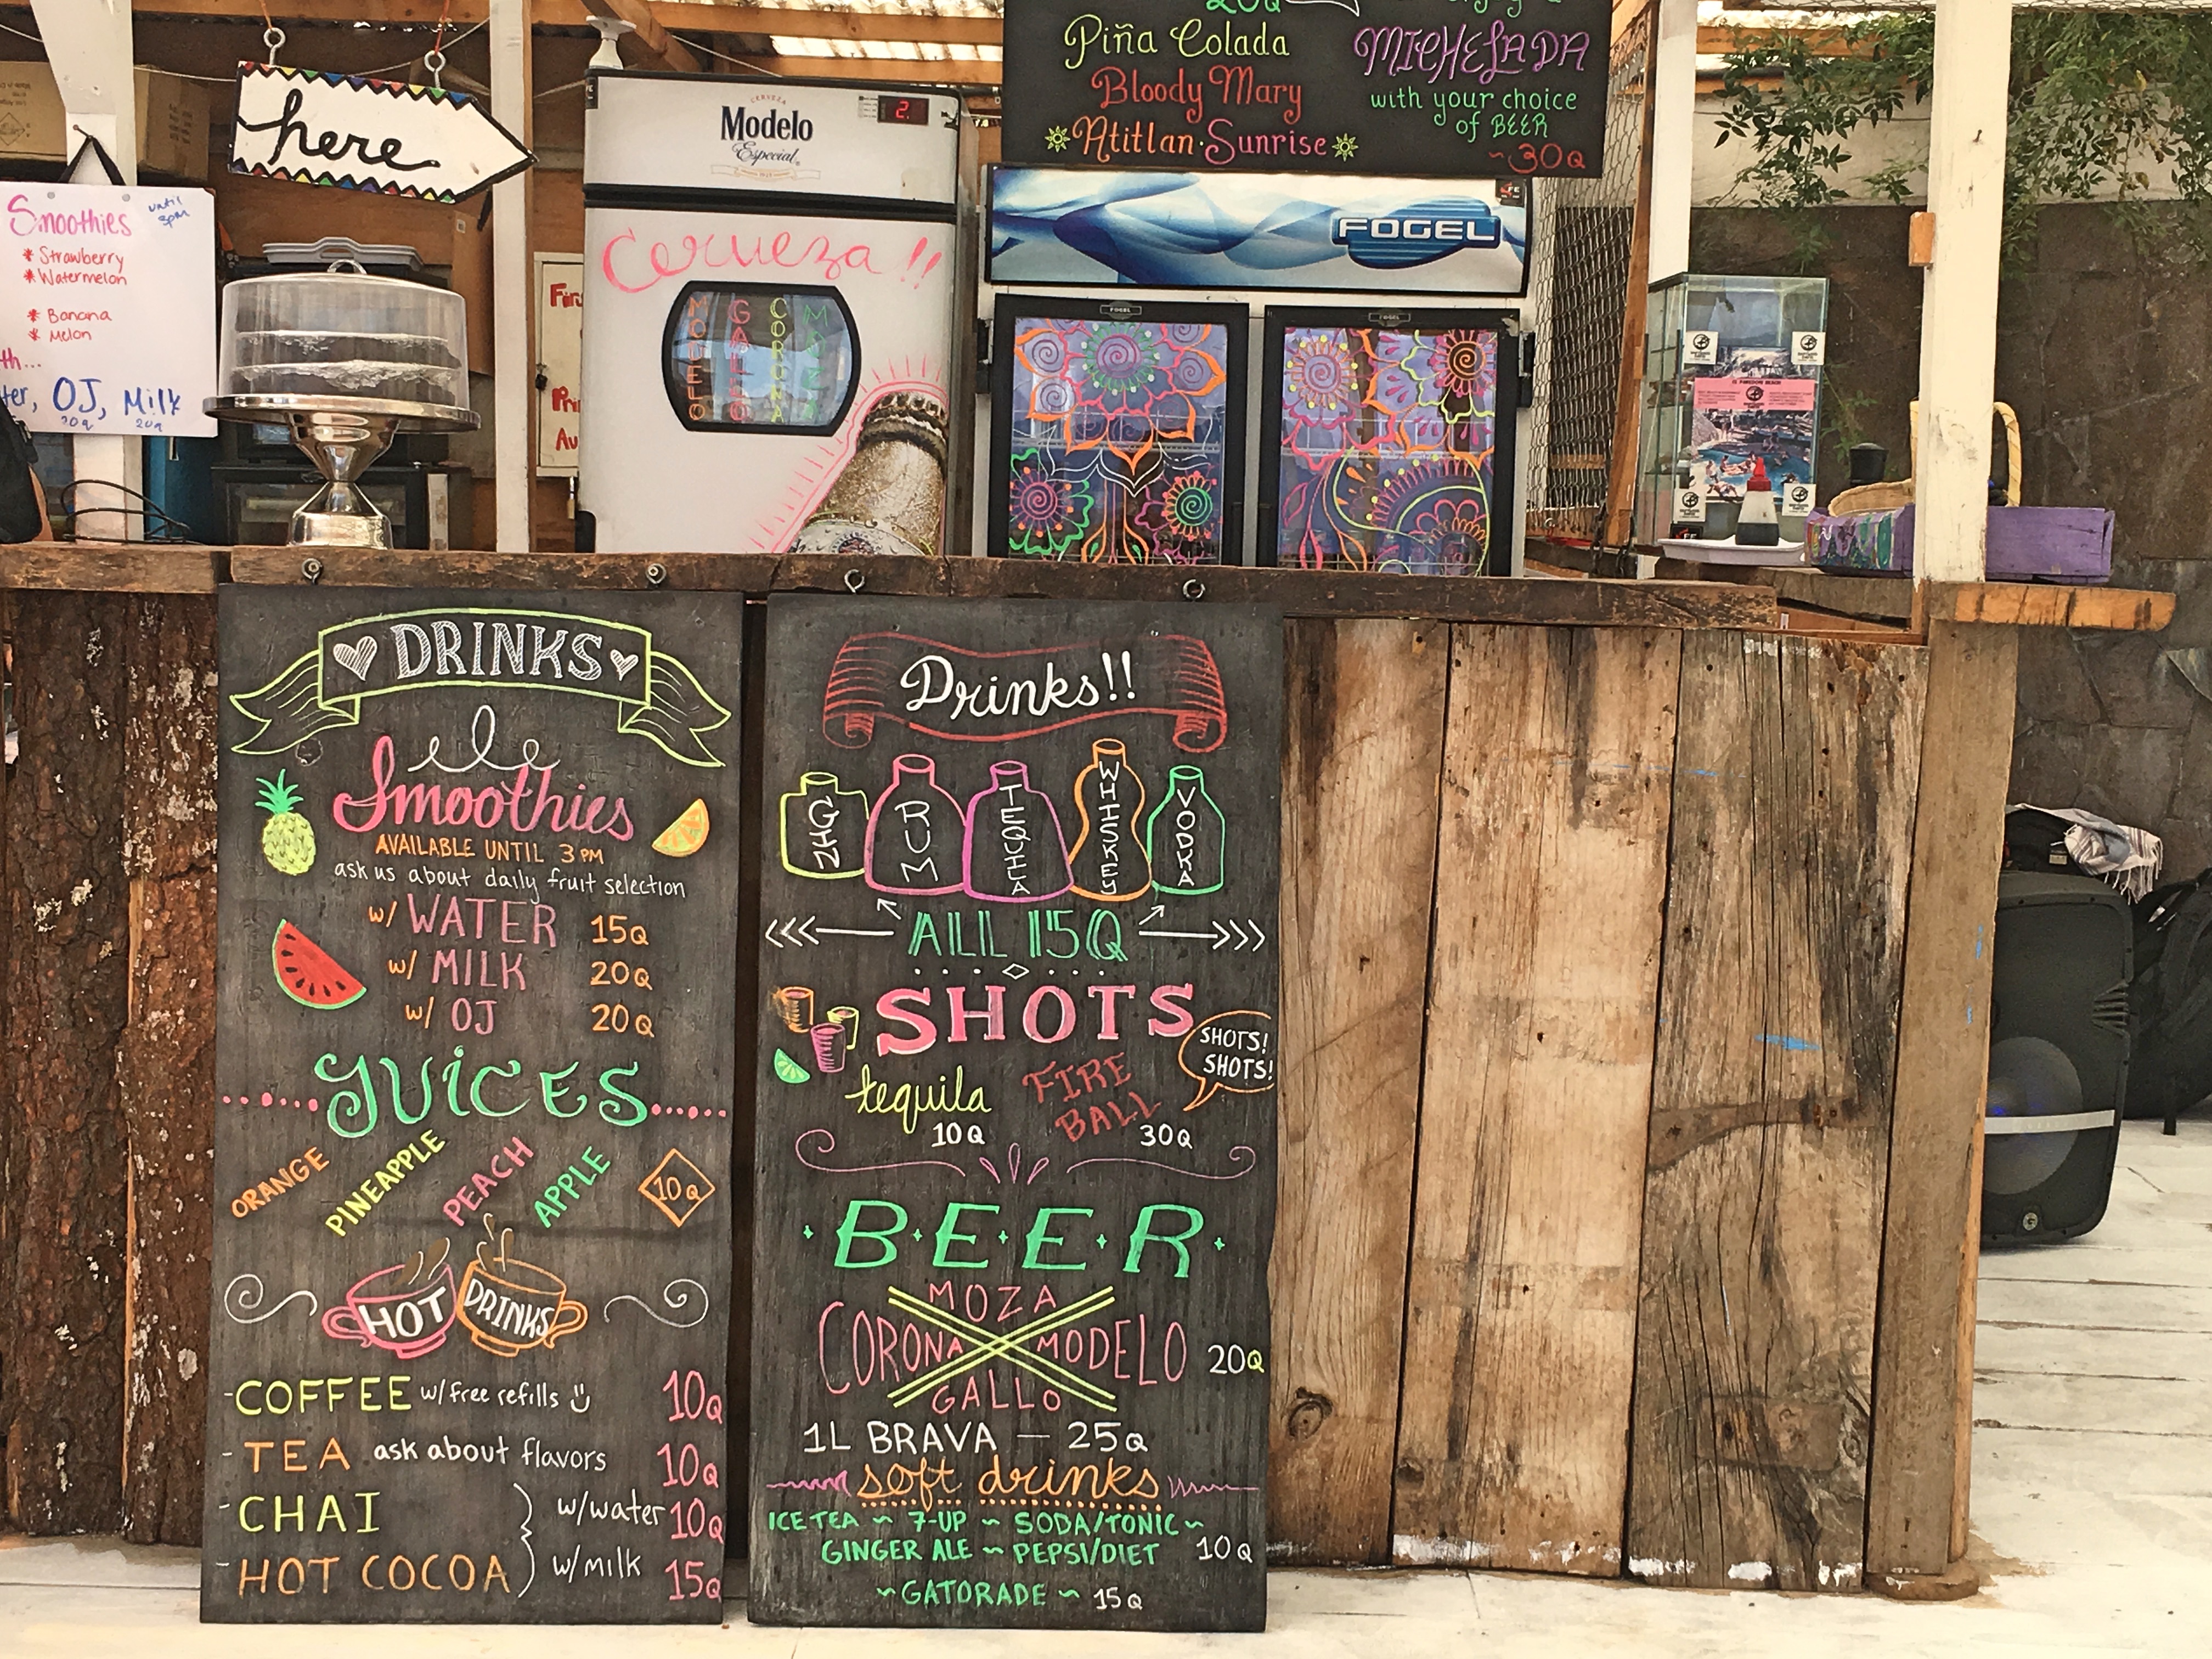 here
Smoothies
until
3pm
* Strawberry
* Watermelon
* Banana
* Melon
OJ, Milk
20q 20q
CERVEZA
Modelo
Especial
2.
Cerveza!!
MODELO
GALLO
CORONA
MOZA
20Q
Piña Colada
Bloody Mary
Atitlan·Sunrise
MICHELADA
with your choice
of BEER
~30Q
FOGEL
FOGEL
FOGEL
DRINKS
Smoothies
AVAILABLE UNTIL 3PM
ask us about daily fruit selection
w/ WATER 15Q
w/ MILK 20Q
w/ OJ 20Q
JUICES
ORANGE PINEAPPLE PEACH APPLE 10Q
HOT DRINKS
-COFFEE w/free refills 10Q
-TEA ask about flavors 10Q
-CHAI w/water 10Q
-HOT COCOA w/milk 15Q
Drinks!!
GIN
RUM
TEQUILA
WHISKEY
VODKA
ALL 15Q
SHOTS
SHOTS!
SHOTS!
tequila
10Q
FIRE
BALL
30Q
B·E·E·R
MOZA
CORONA MODELO 20Q
GALLO
1L BRAVA — 25Q
soft drinks
ICE TEA ~ 7-UP ~ SODA/TONIC ~
GINGER ALE ~ PEPSI/DIET 10Q
~GATORADE ~ 15Q